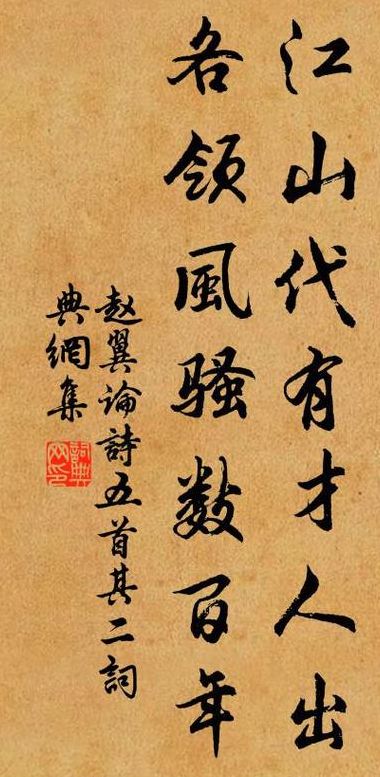 江山代有才人出
各領風骚数百年
赵翼論詩五首其二詞
典網集
詞典網印